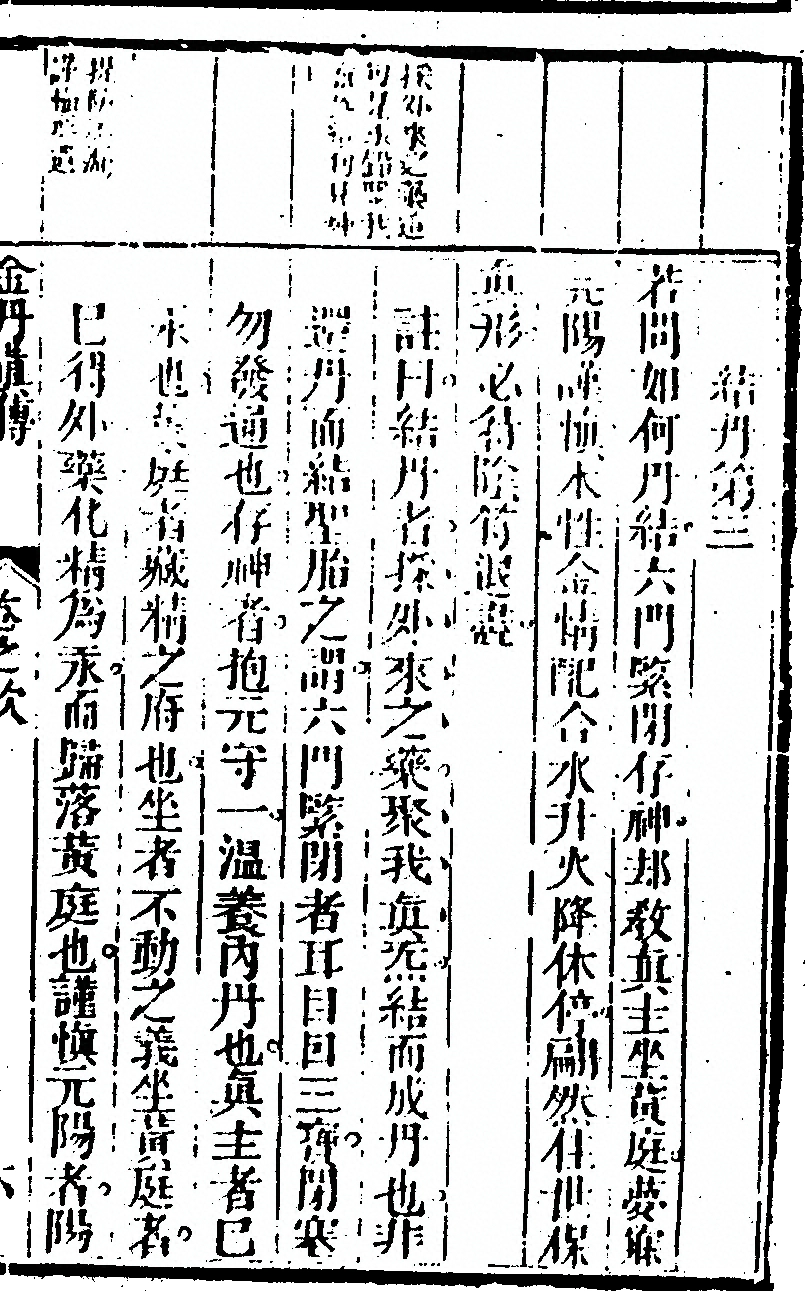 結丹第三
若問如何丹結六門緊閉存神却教真主坐黃庭夢寐
元陽謹慎木性金情配合水升火降休停翩然住世保
真形必待陰符退
註曰結丹者採外來之藥聚我真炁結而成丹也非
還丹而結聖胎之謂六門緊閉者耳目口三寶閉塞
勿發通也存神者抱元守一溫養內丹也真主者己
汞也黃庭者藏精之府也坐者不動之義坐黃庭者
已得外藥化精爲汞而歸落黃庭也謹慎元陽者陽
金丹真傳
卷之次
六
採外來之藥